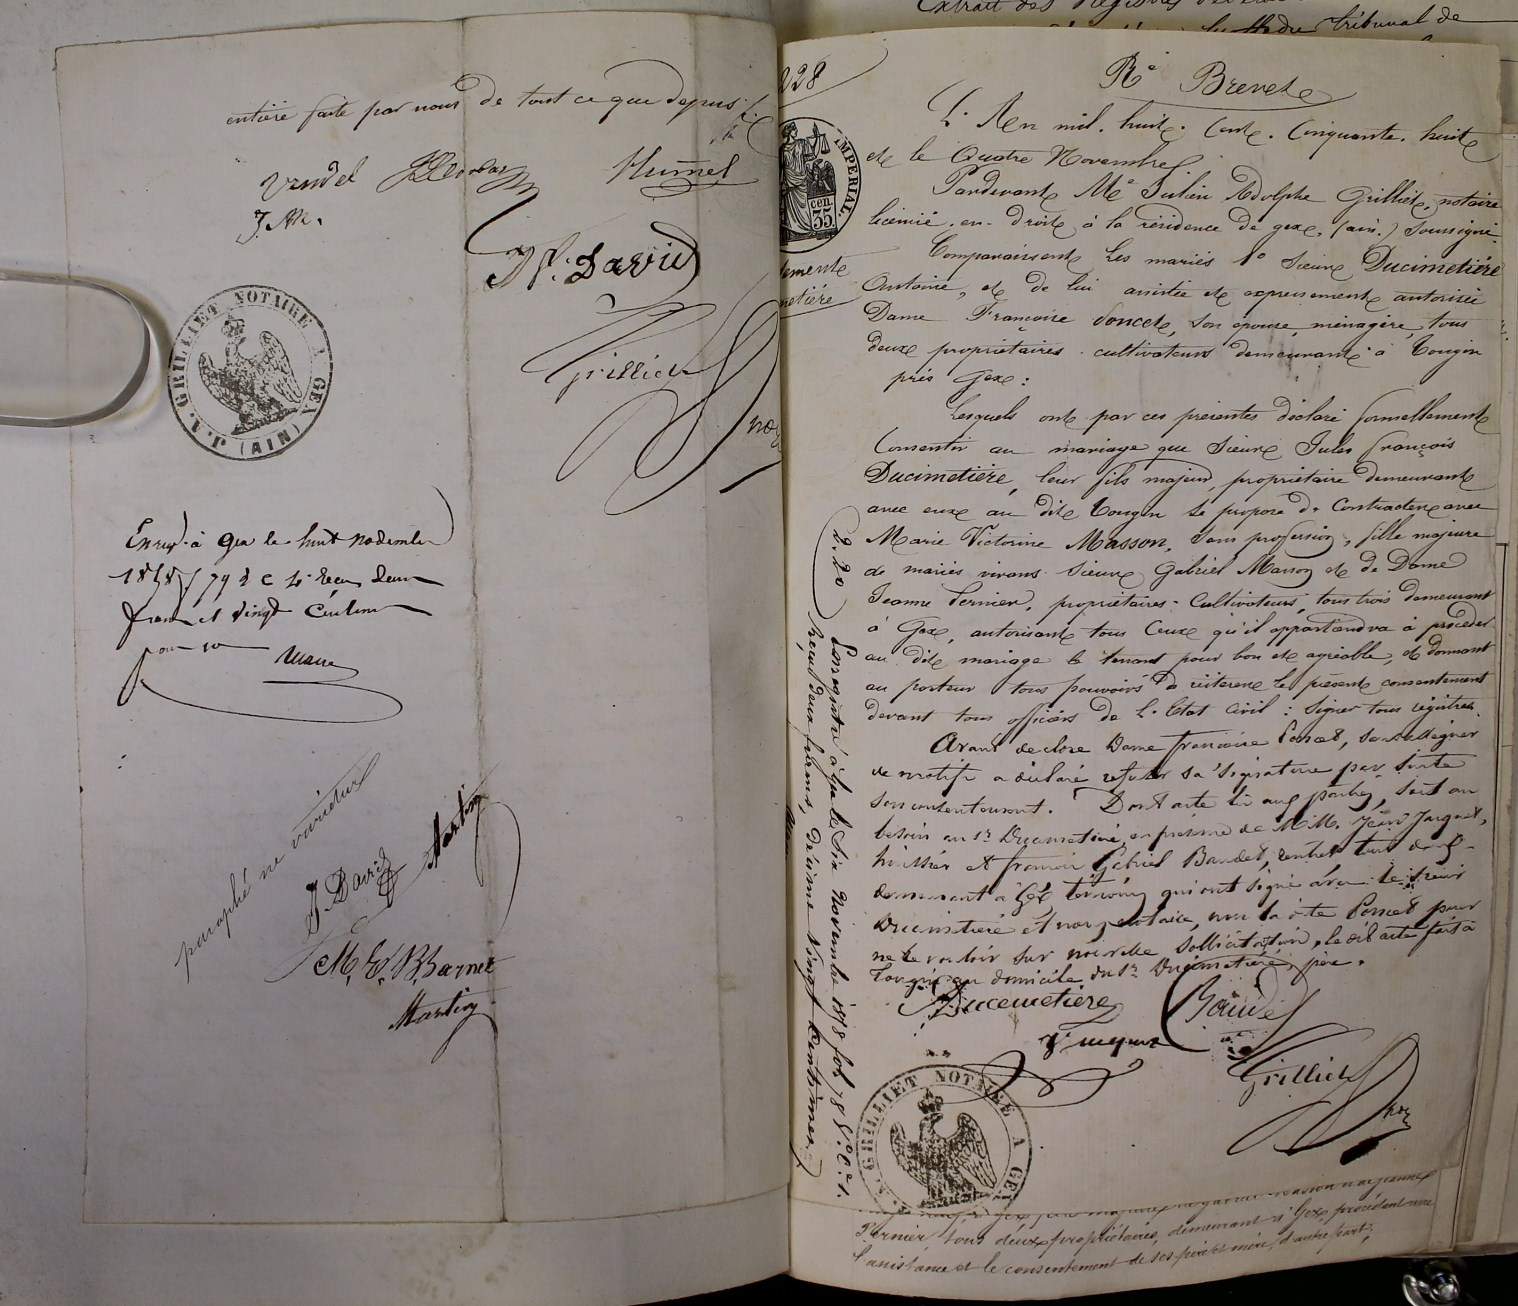 entière faite par nous de tout ce que depus
Humel
Jh. David
Grilliet
J. A. GRILLIET NOTAIRE A GEX (AIN)
Enreg. à Gex le huit novembre
1858 f 79
francs et vingt centimes
paraphé ne varietur
J. David
Martin
M. E. B. Barnet
Martin
Extrait des Registres
tribunal de
228
IMPERIAL.
35 cen
Re Brevet
L'An mil huit Cent Cinquante huit
et le Quatre Novembre
Pardevant Me Julien Adolphe Grilliet, notaire
licencié en droit à la résidence de gex, (ain) soussigné.
Comparaissent les mariés 1o Sieur Ducimetière
Antoine, et de lui assistée et expressement autorisée
Dame Françoise Poncet, son épouse, ménagère, tous
deux propriétaires cultivateurs demeurant à Tougin
près Gex :
Lesquels ont par ces présentes déclaré formellement
Consentir au mariage que Sieur Jules François
Ducimetière, leur fils majeur, propriétaire demeurant
avec eux au dit Tougin se propose de Contracter avec
Marie Victorine Masson, sans profession, fille majeure
de mariés vivans Sieur Gabriel Masson et de Dame
Jeanne Pernier, propriétaires Cultivateurs, tous trois demeurant
à Gex, autorisant tous Ceux qu'il appartiendra à procéder
au dit mariage le tenant pour bon et agréable, et donnant
au porteur tous pouvoirs de réiterer le présent consentement
devant tous officiers de l'Etat Civil : signer tous registres.
Avant de clore Dame françoise Poncet, sans assigner
de motifs a déclaré refuser sa signature par suite
son consentement. Dont acte lu aux parties, soit au
besoin au Sr Ducimetière, en présence de MM. Jean Jacquet,
huissier et françois Gabriel Baudet, rentier, tous deux
demeurant à Gex témoins qui ont signé avec le sieur
Ducimetière et nous notaire, non la dite Poncet pour
ne le vouloir sur nouvelle sollicitation, le dit acte fait à
Tougin au domicile du Sr Ducimetière, père.
Ducemetiere
Baudet
Grilliet
2.20
Enregistré à Gex le Six Novembre 1858 fol 78
Reçu deux francs, décime vingt centimes
J. A. GRILLIET NOTAIRE A GEX
Pernier, tous deux propriétaires, demeurant à Gex, procédant avec
l'assistance et le consentement de ses père et mère, d'autre part,